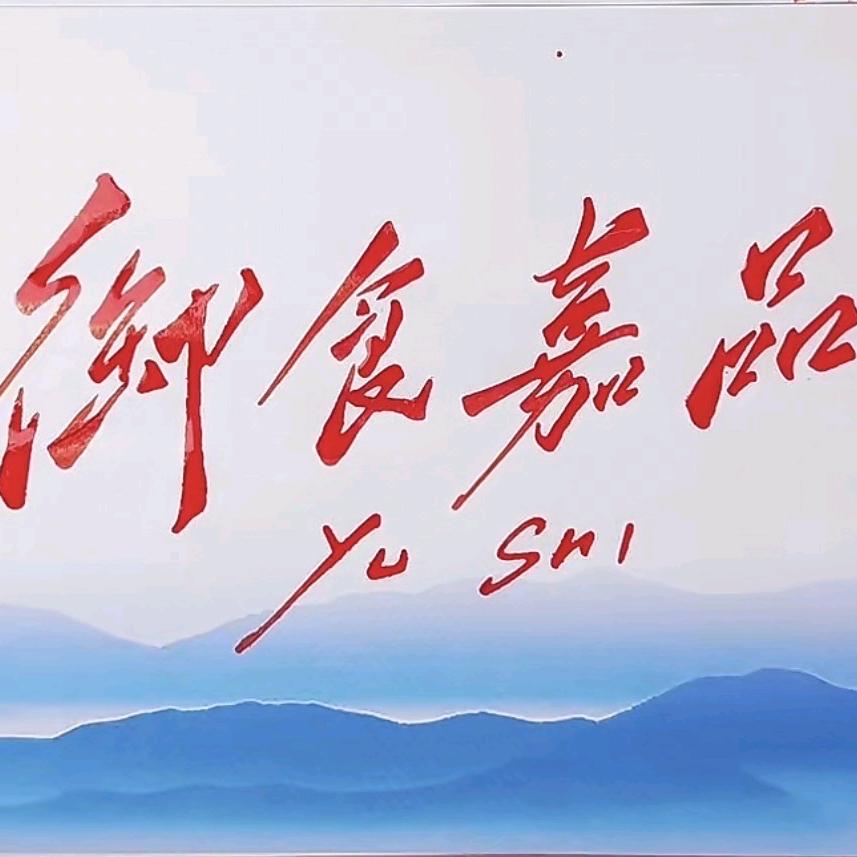 御食嘉品
YU SHI